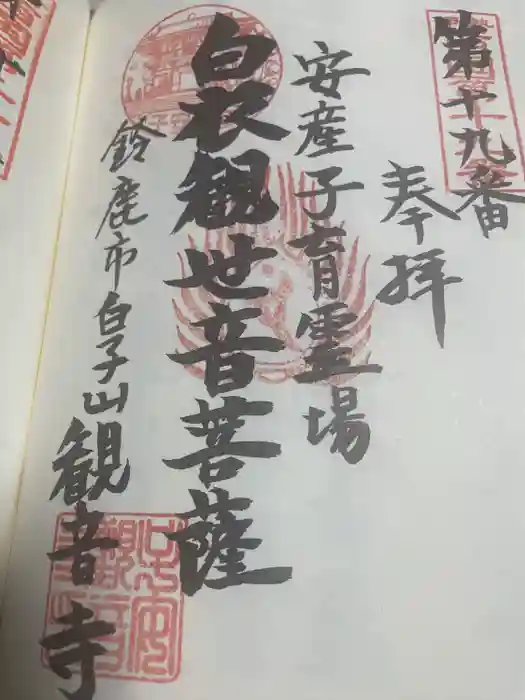 第十九番
奉拝
安産子育霊場
白衣観世音菩薩
鈴鹿市白子山観音寺